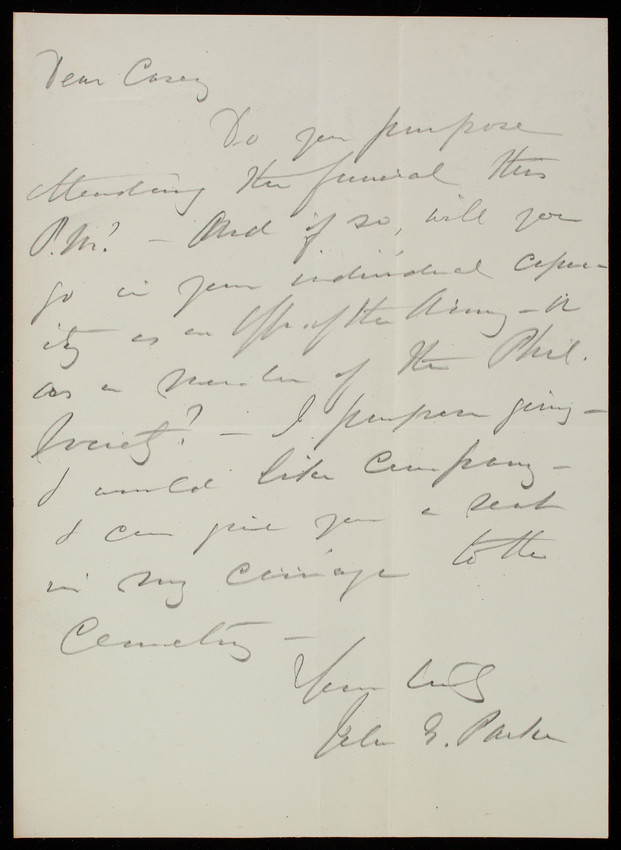 Dear Casey
Do you purpose
attending the funeral this
P.M.? – And if so, will you
go in your individual capac-
ity as an Offr. of the Army – or
as a member of the Phil.
Society? – I purpose going –
I would like company –
I can give you a seat
in my carriage to the
Cemetery –
Yours truly
John G. Parke